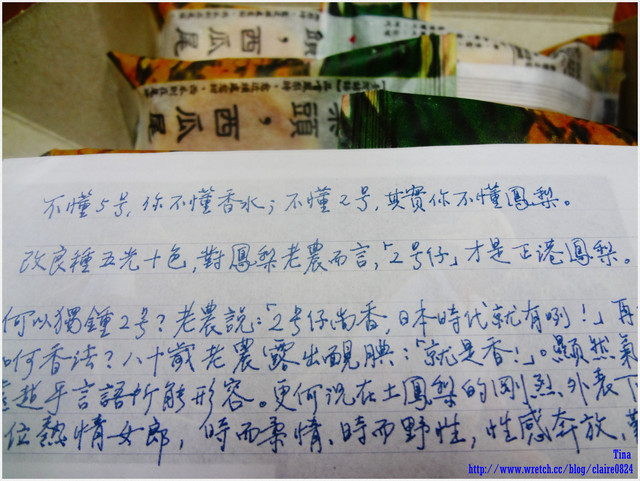 西瓜尾
頭，西瓜尾
不懂5号，你不懂香水；不懂2号，其實你不懂鳳梨。
改良種五光十色，對鳳梨老農而言，「2号仔」才是正港鳳梨。
何以獨鍾2号？老農說：「2号仔尚香，日本時代就有咧！」再
如何香法？八十歲老農露出靦腆：「就是香！」。顯然氣
超乎言語所能形容。更何況在土鳳梨的剛烈外表下
位熱情女郎，時而柔情、時而野性，性感奔放，
Tina
http://www.wretch.cc/blog/claire0824